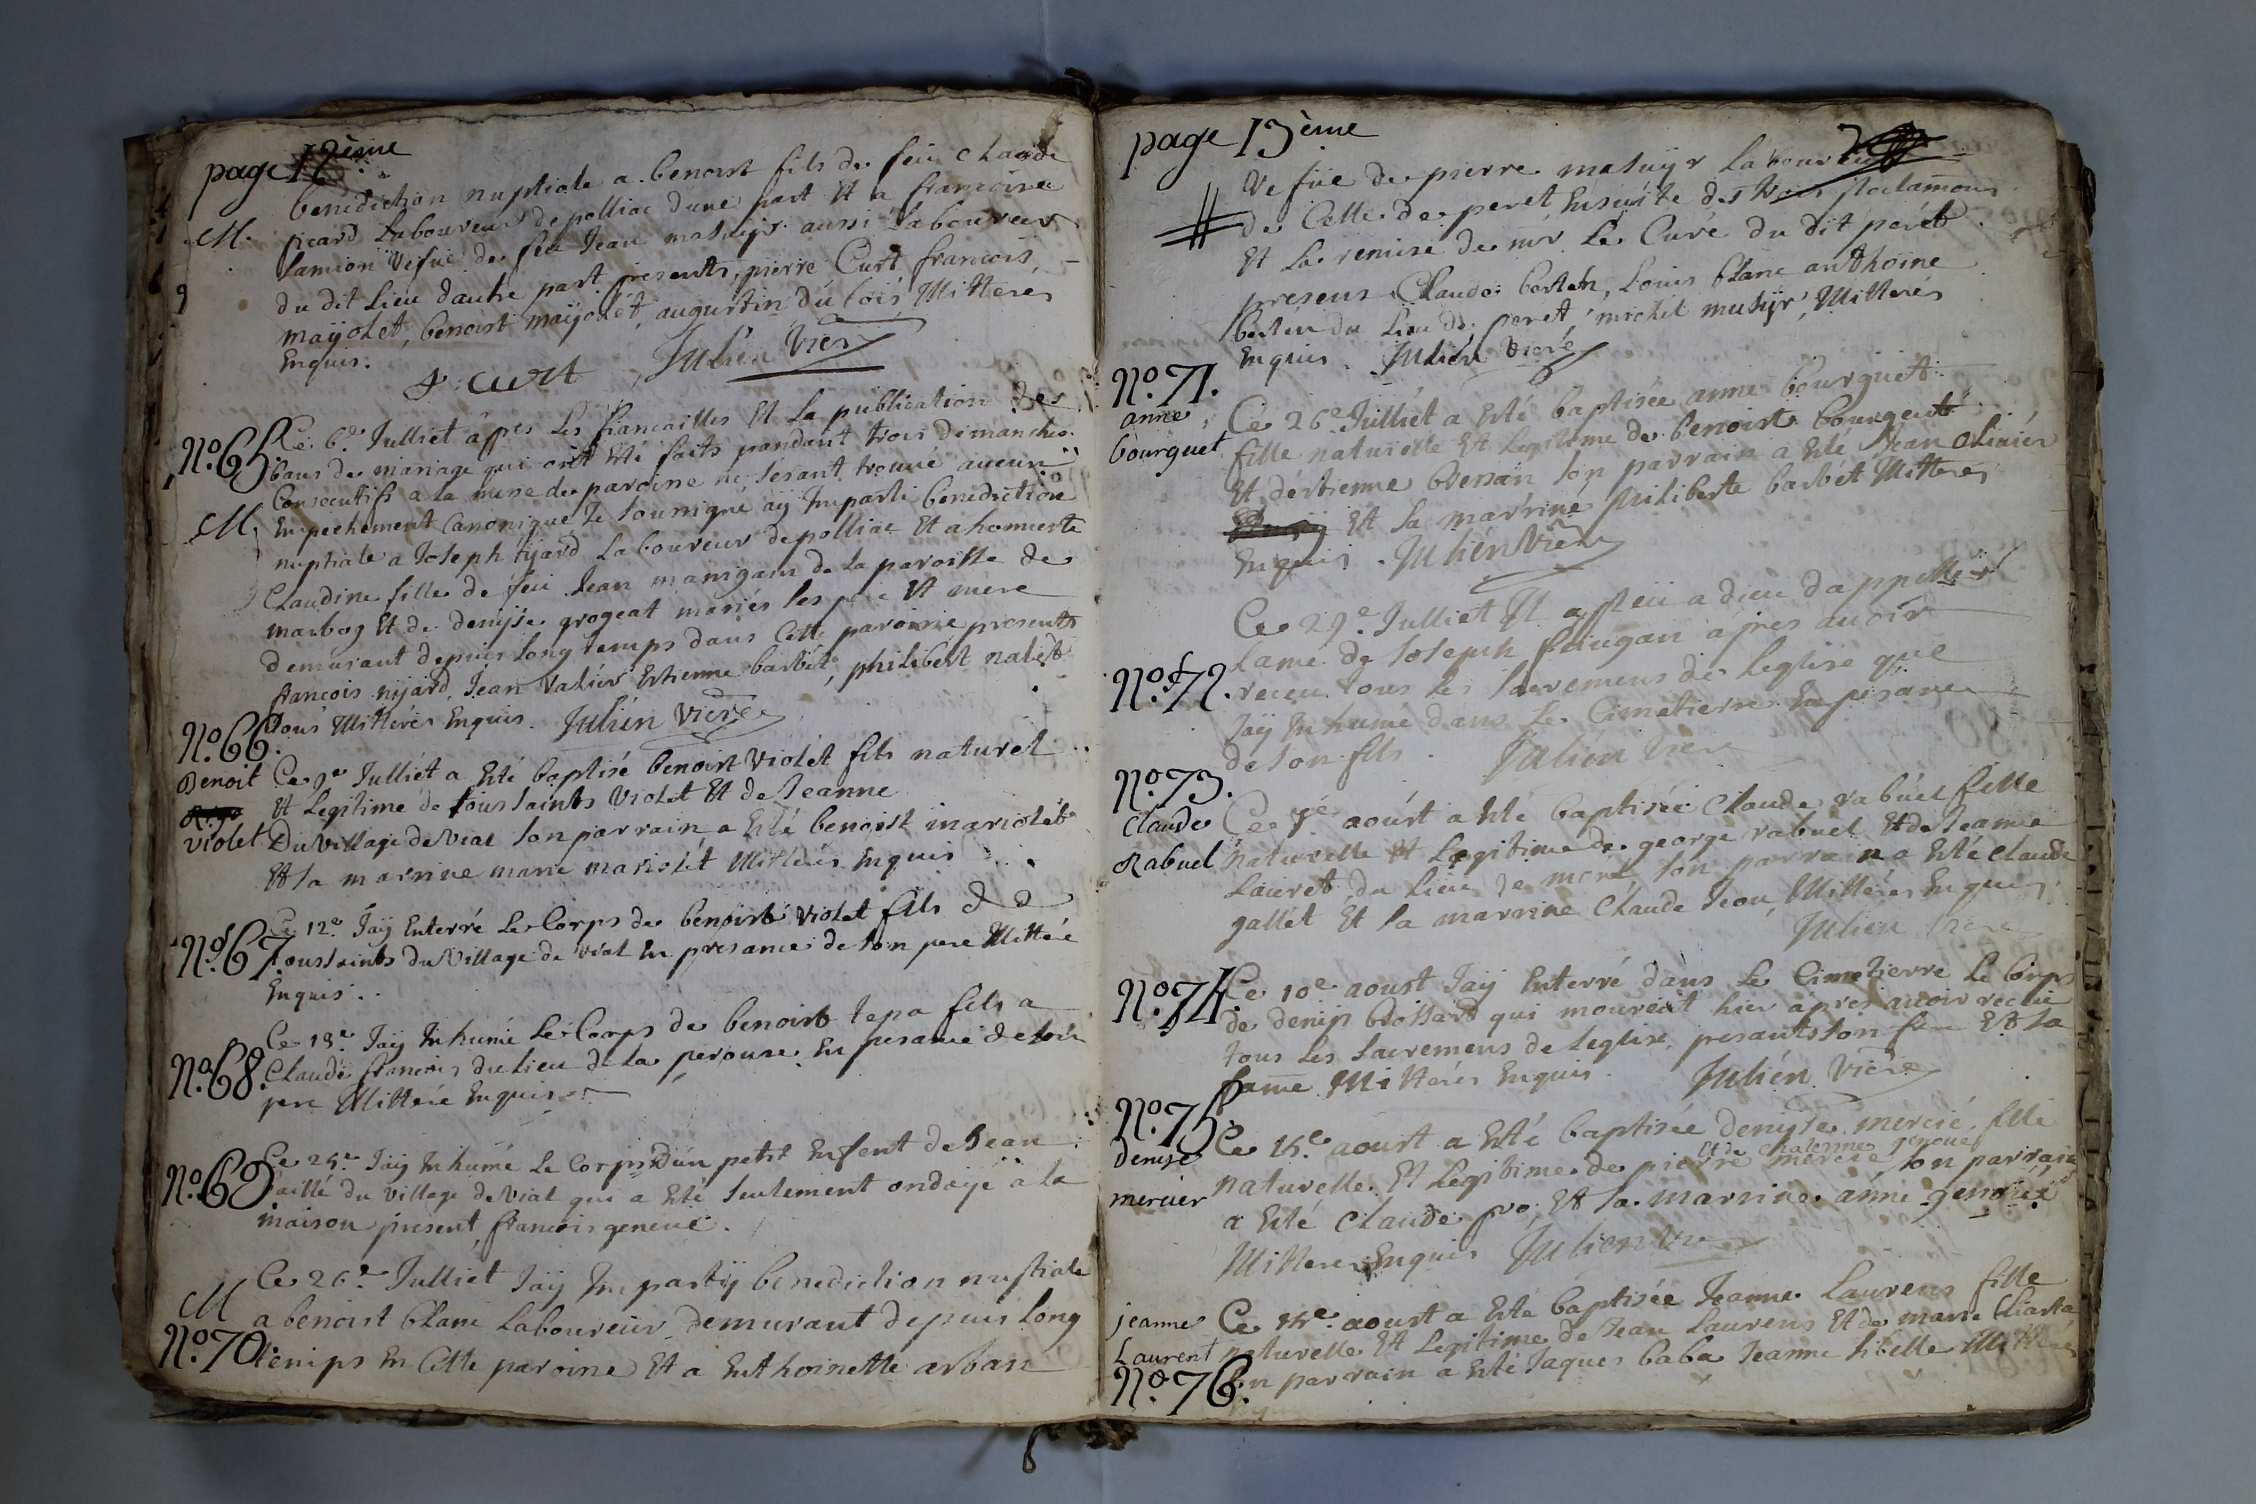 page 12ème
benediction nuptiale a benoist fils de feu claude
M. picard Laboureur de polliac d'une part Et a francoise
Lamion Vefue de feu Jean masuyr aussi Laboureur
du dit Lieu dautre part presents, pierre Curt, francois
mayolet, benoist maÿolét, augustin du bois, Mitteres
Enquis.
p. curt Julien Viere
No. 65. Ce 6e. Julliet âpres les fiancailles Et la publication des
bans de mariage qui ont Eté faits pandant trois dimanches
Consecutifs a la messe de paroisse ne sesant trouué aucun
M. Empechement Canonique Je soussigné aÿ Imparti benediction
nuptiale a Joseph nijard Laboureur de polliac Et a honneste
Claudine fille de feu Jean manigand de la paroisse de
marboz Et de denyse grogeat mariés ses pere Et mere
demurant depuis long temps dans Cette paroisse presents
francois nijard, Jean Valiér Estienne barbét, philibert nalét
tous Mitterés Enquis. Julién Viere
No. 66. Ce 9e Julliét a Esté baptisé benoist Violét fils naturel
Benoit Et Legitime de toussaints Violet Et de Jeanne
violet Du Village de Vial son parrain a Esté benoist mariolét
Et sa marrine marie mariolét Mitterés Enquis
No. 67. Ce 12e. Jaÿ Enterré Le Corps de benoist Violet fils de
toussaints du Village de Vial En presance de son pere Mitteré
Enquis.
No. 68. Ce 13e. Jaÿ Inhumé Le Corps de benoist tepa fils a
Claude francois du Lieu de la perouse En presance de son
pere Mitteré Enquis
No. 69. Ce 25e. Jaÿ Inhumé Le Corps d'un petit Enfent de Jean
aillé du village de Vial qui a Esté seulement ondoÿé a la
maison present francois geneué.
M Ce 26e. Julliét Jaÿ Impartÿ benediction nuptiale
a benoist blanc Laboureur demurant depuis long
No. 70. temps En Cette paroisse Et a Enthoinette arban
page 13ème
Vefue de pierre masuÿr Laboureur
de Celle de peret Ensuite des proclamõns
Et La remise de mr Le Curé du dit perét
presens Claude bertén, Louis blanc anthoine
bertén du Lieu de peret, michel musÿr, Mitteres
Enquis. Julién Vieré
No. 71.
anne Ce 26e. Julliét a Esté baptisée anne bourguét
bourguet fille naturelle Et Legitime de benoist bourguét
Et d'estienne son parrain a Esté Jean oliuiér
Et sa marrine philiberte barbét Mitteres
Enquis. Julién Viere
Ce 29e. Julliet Il a pleu a dieu dappeller
Lame de Joseph apres auoir
No. 72. receu tous les sacremens de leglise que
Jaÿ Inhumé dans Le Cimetierre En presance
de son fils. Julién Viere
No. 73.
Claude Ce aoúst a Esté baptisée Claude rabuél fille
Rabuel naturelle Et Legitime de george rabuel Et de Jeanne
Lauret du Lieu de mons son parrain a Esté claude
gallét Et sa marrine Claude Jeou, Mitterés Enquis
Julien Viere
No. 74. Ce 10e aoust Jaÿ Enterré dans Le Cimetierre Le Corps
de denis brossard qui mourut hier apres auoir receu
tous Les sacremens de leglise, presants son Et sa
fame Mitterés Enquis. Julién Viere
No. 75.
Denise Ce 15e aoust a Esté baptisée denyse mercié fille
Et de chaterine geneué
mercier naturelle Et Legitime de pierre mercié, son parrain
a Esté Claude pro, Et sa marrine anne geneué
Mitteres Enquis Julien Viere
jeanne Ce 15e. aoust a Esté baptisée Jeanne Laurens fille
Laurent naturelle Et Legitime de Jean Laurens Et de marie
No. 76. son parrain a Esté Jaques baba Jeanne sibelle Mitterés